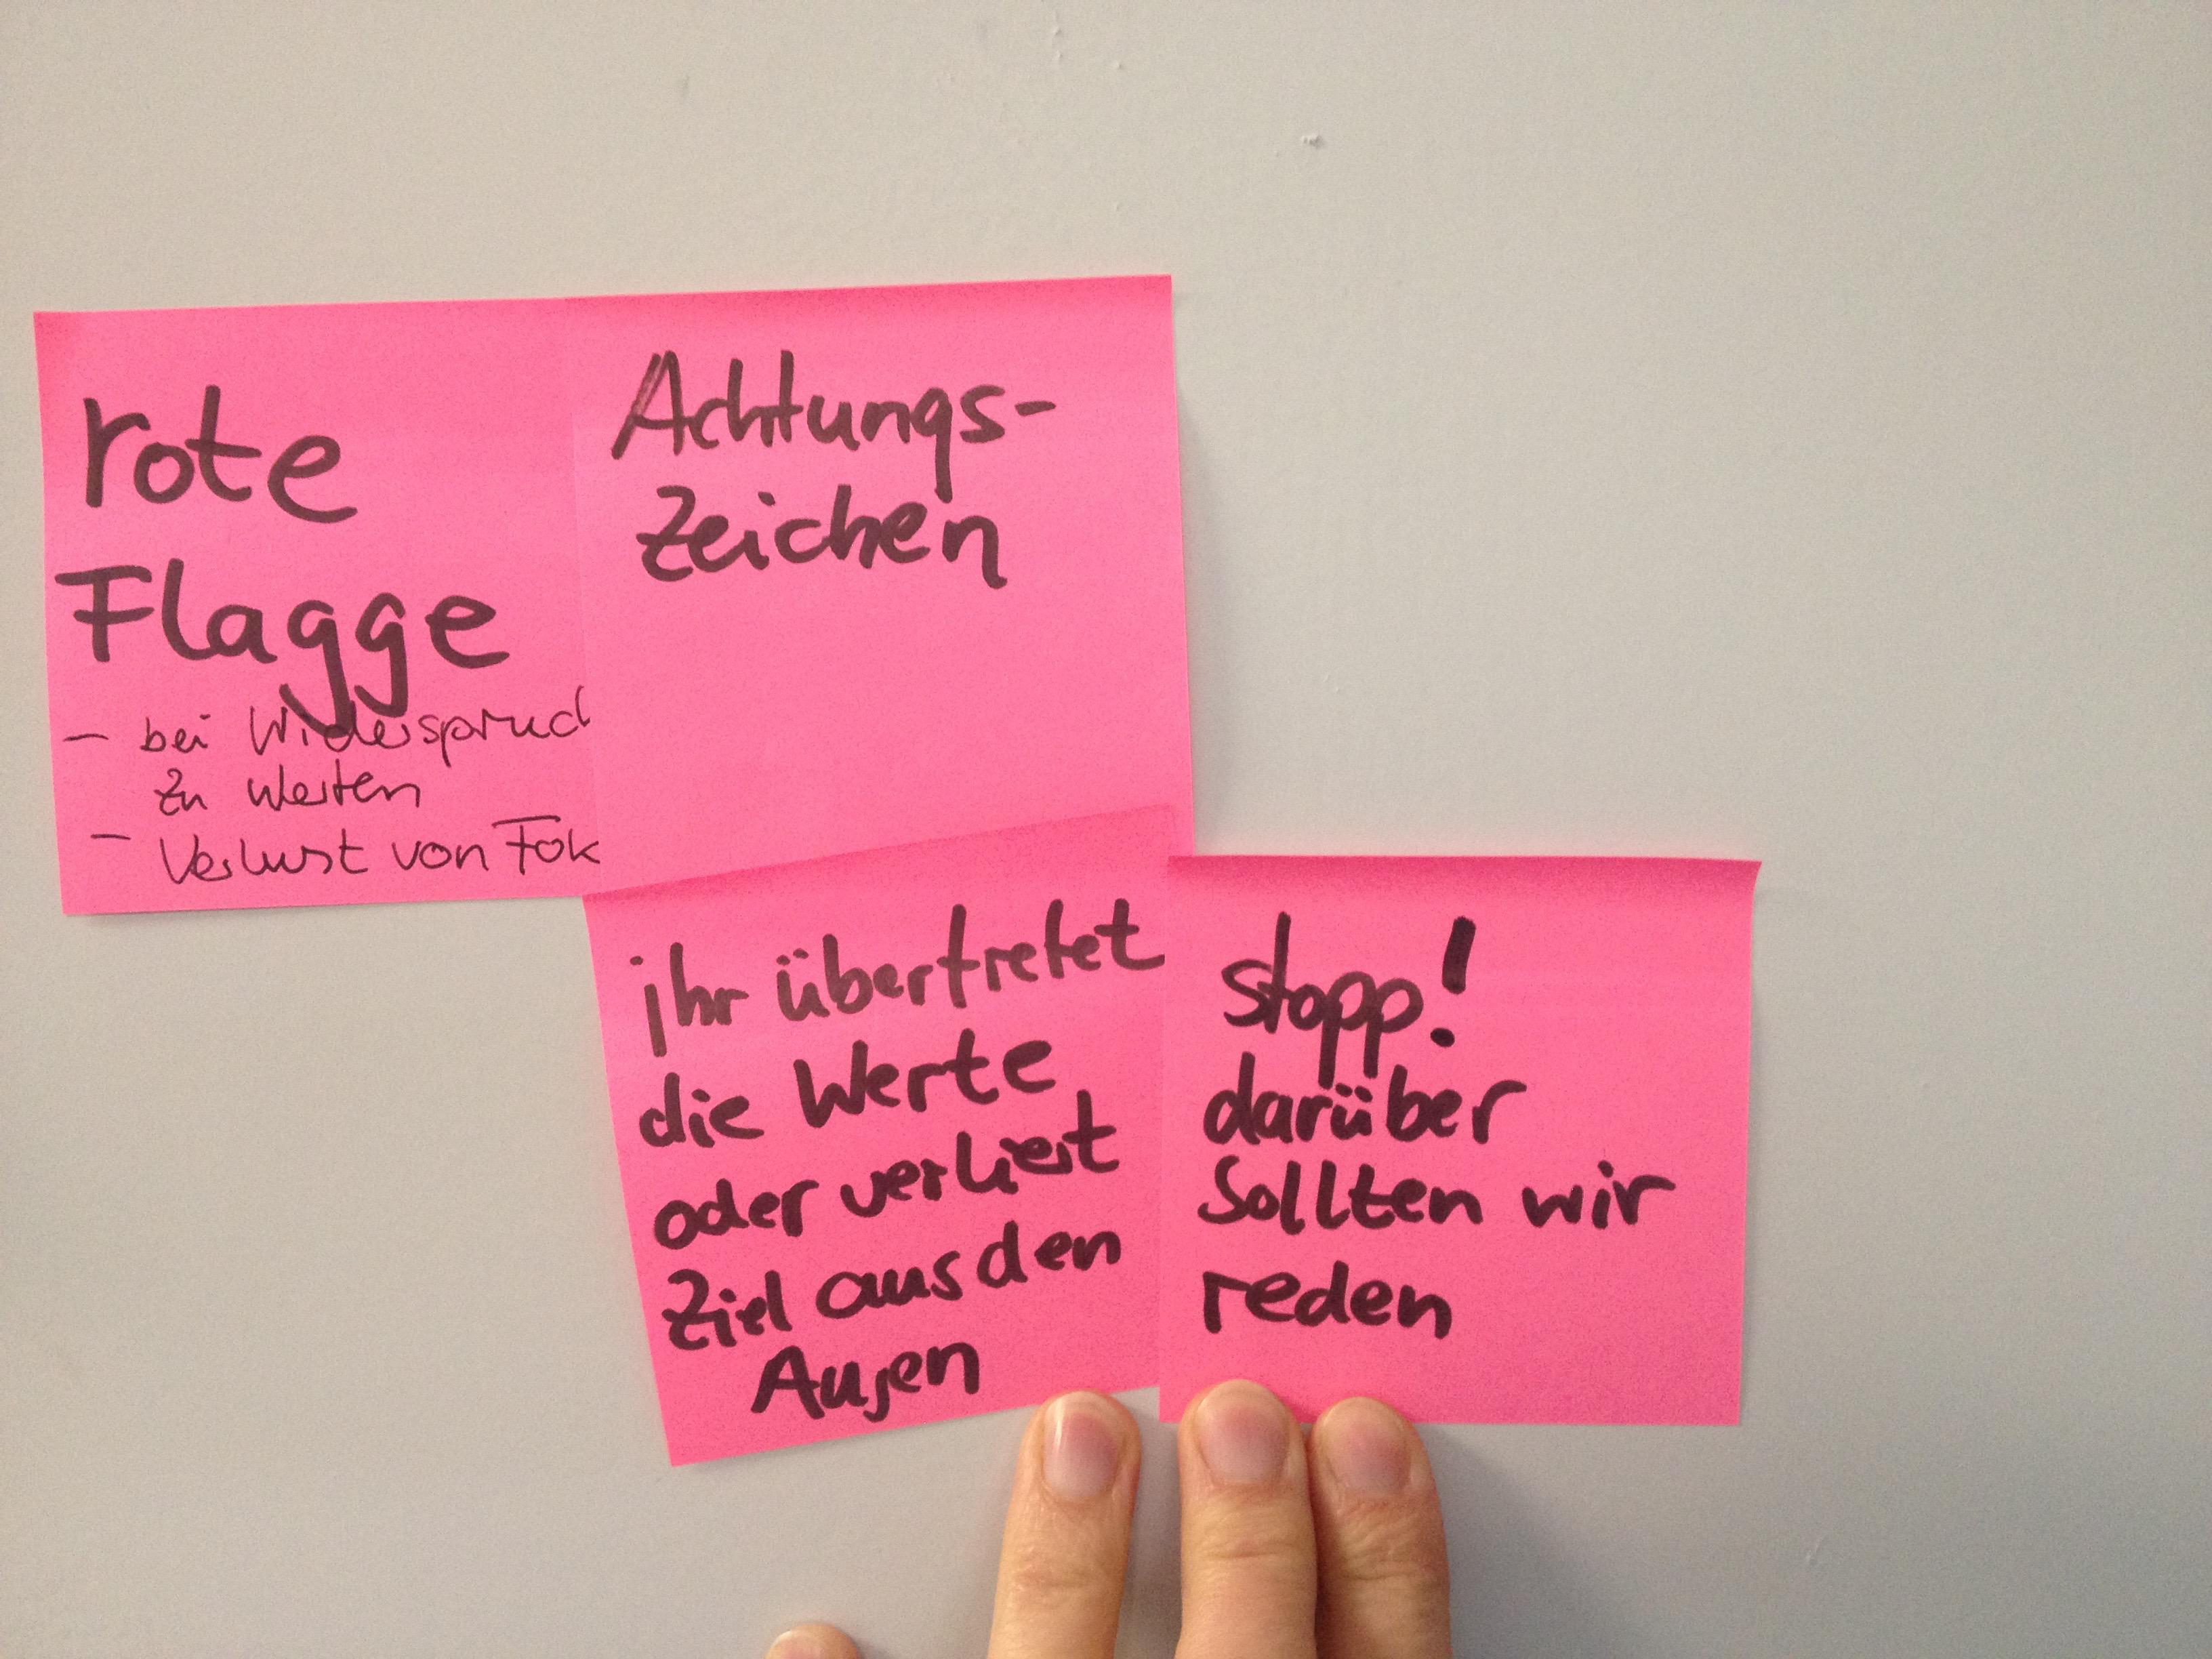 rote
Flagge
- bei Widerspruch
zu Werten
- Verlust von Fok
Achtungs-
zeichen
ihr übertretet
die Werte
oder verliert
Ziel aus den
Augen
stopp!
darüber
sollten wir
reden